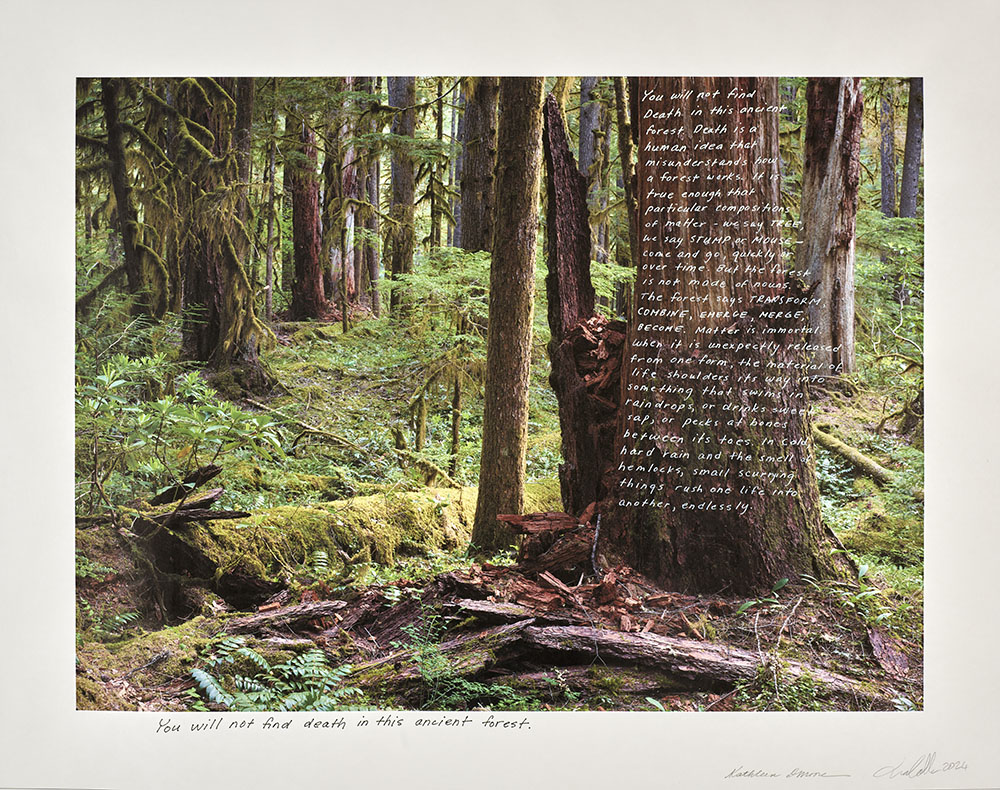 You will not find
Death in this ancient
forest. Death is a
human idea that
misunderstands how
a forest works. It is
true enough that
particular compositions
of matter - we say TREE,
we say STUMP or MOUSE -
come and go, quickly or
over time. But the forest
is not made of nouns.
The forest says TRANSFORM,
COMBINE, EMERGE, MERGE,
BECOME. Matter is immortal.
When it is unexpectly released
from one form, the material of
life shoulders its way into
something that swims in
raindrops, or drinks sweet
sap, or pecks at bones
between its toes. In cold
hard rain and the smell of
hemlocks, small scurrying
things rush one life into
another, endlessly.
You will not find death in this ancient forest.
Kathleen 2024